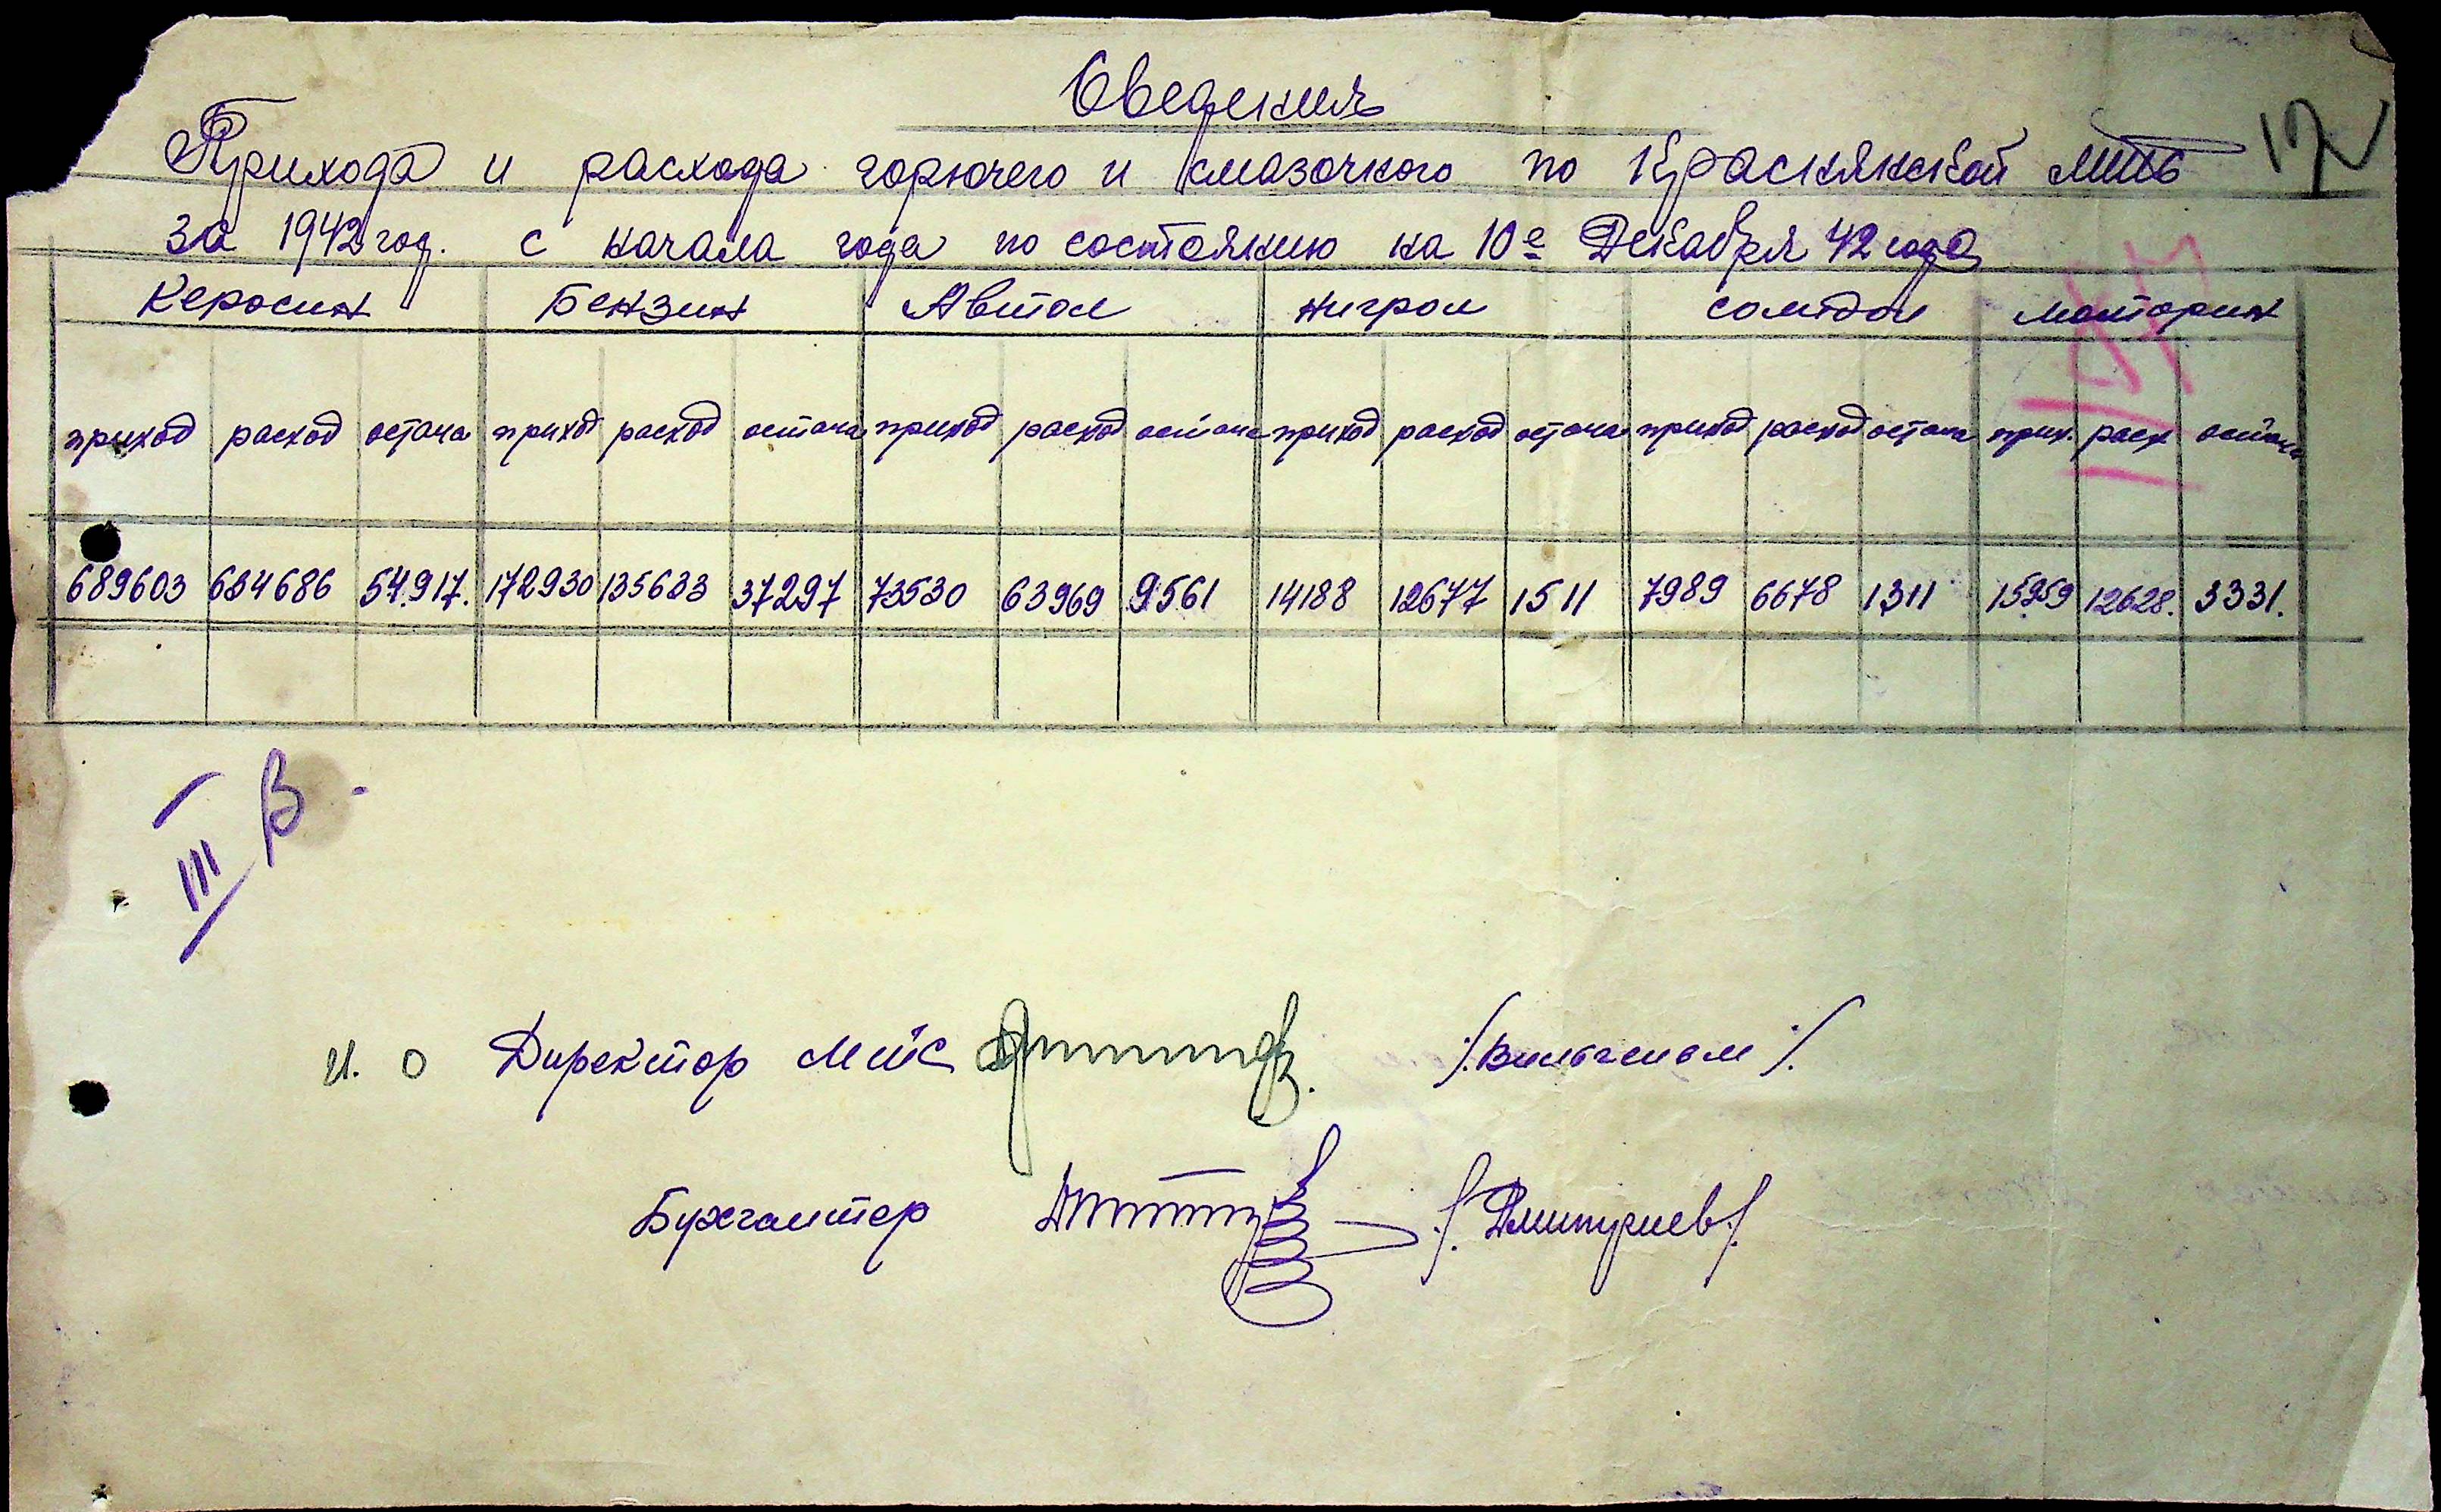 Сведения
Прихода и расхода горючего и смазочного по Краснянской МТС
за 1942 год. с начала года по состоянию на 10е Декабря 42 года
Керосин Бензин Автол Нигрол солидол моторин
приход расход остача приход расход остача приход расход остача приход расход остача приход расход остача прих. расх остача
689603 634686 54.917. 172930 135633 37297 73530 63969 9561 14188 12677 1511 7989 6678 1311 15959 12628. 3331.
III В
и. о Директор МТС /.Вильгельм/.
Бухгалтер /.Дмитриев/.